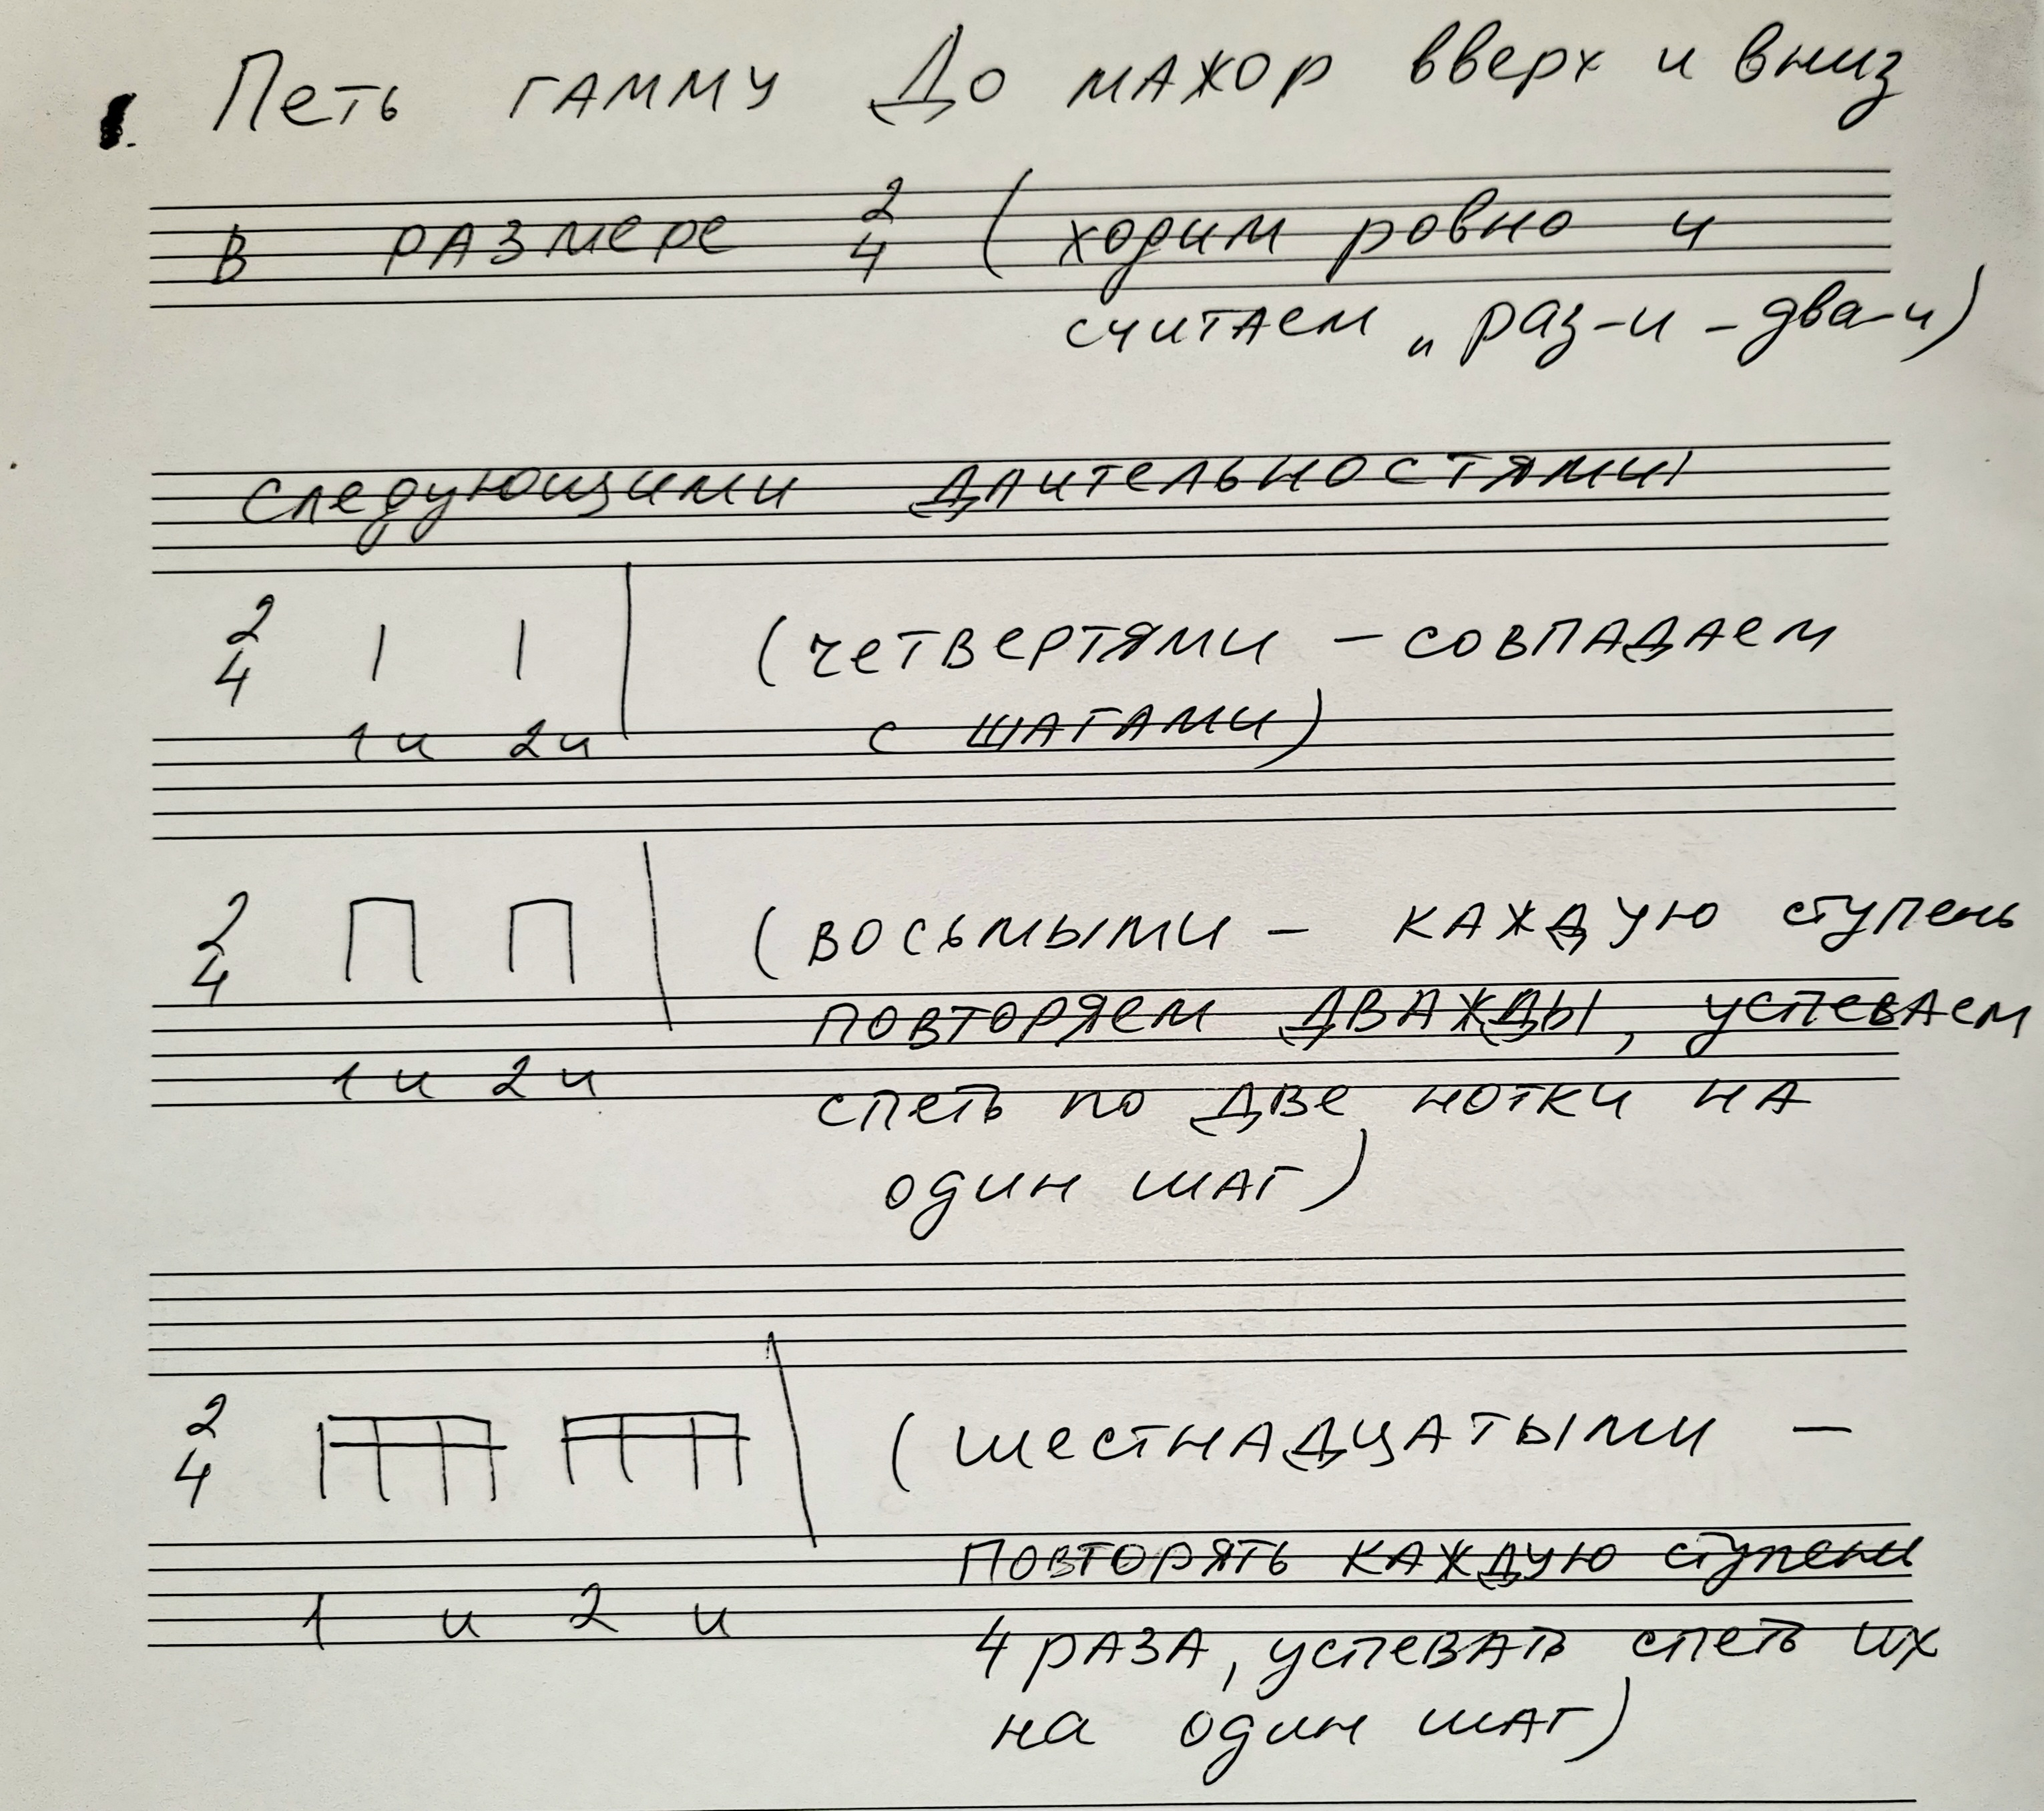 1. Петь гамму До мажор вверх и вниз
в размере 2/4 (ходим ровно и
считаем „раз-и-два-и)
следующими длительностями
2/4 | | | (четвертями – совпадаем
1и 2и с шагами)
2/4 П П | (восьмыми – каждую ступень
повторяем дважды, успеваем
1и 2и спеть по две нотки на
один шаг)
2/4 (шестнадцатыми –
повторять каждую ступень
1 и 2 и 4 раза, успевать спеть их
на один шаг)